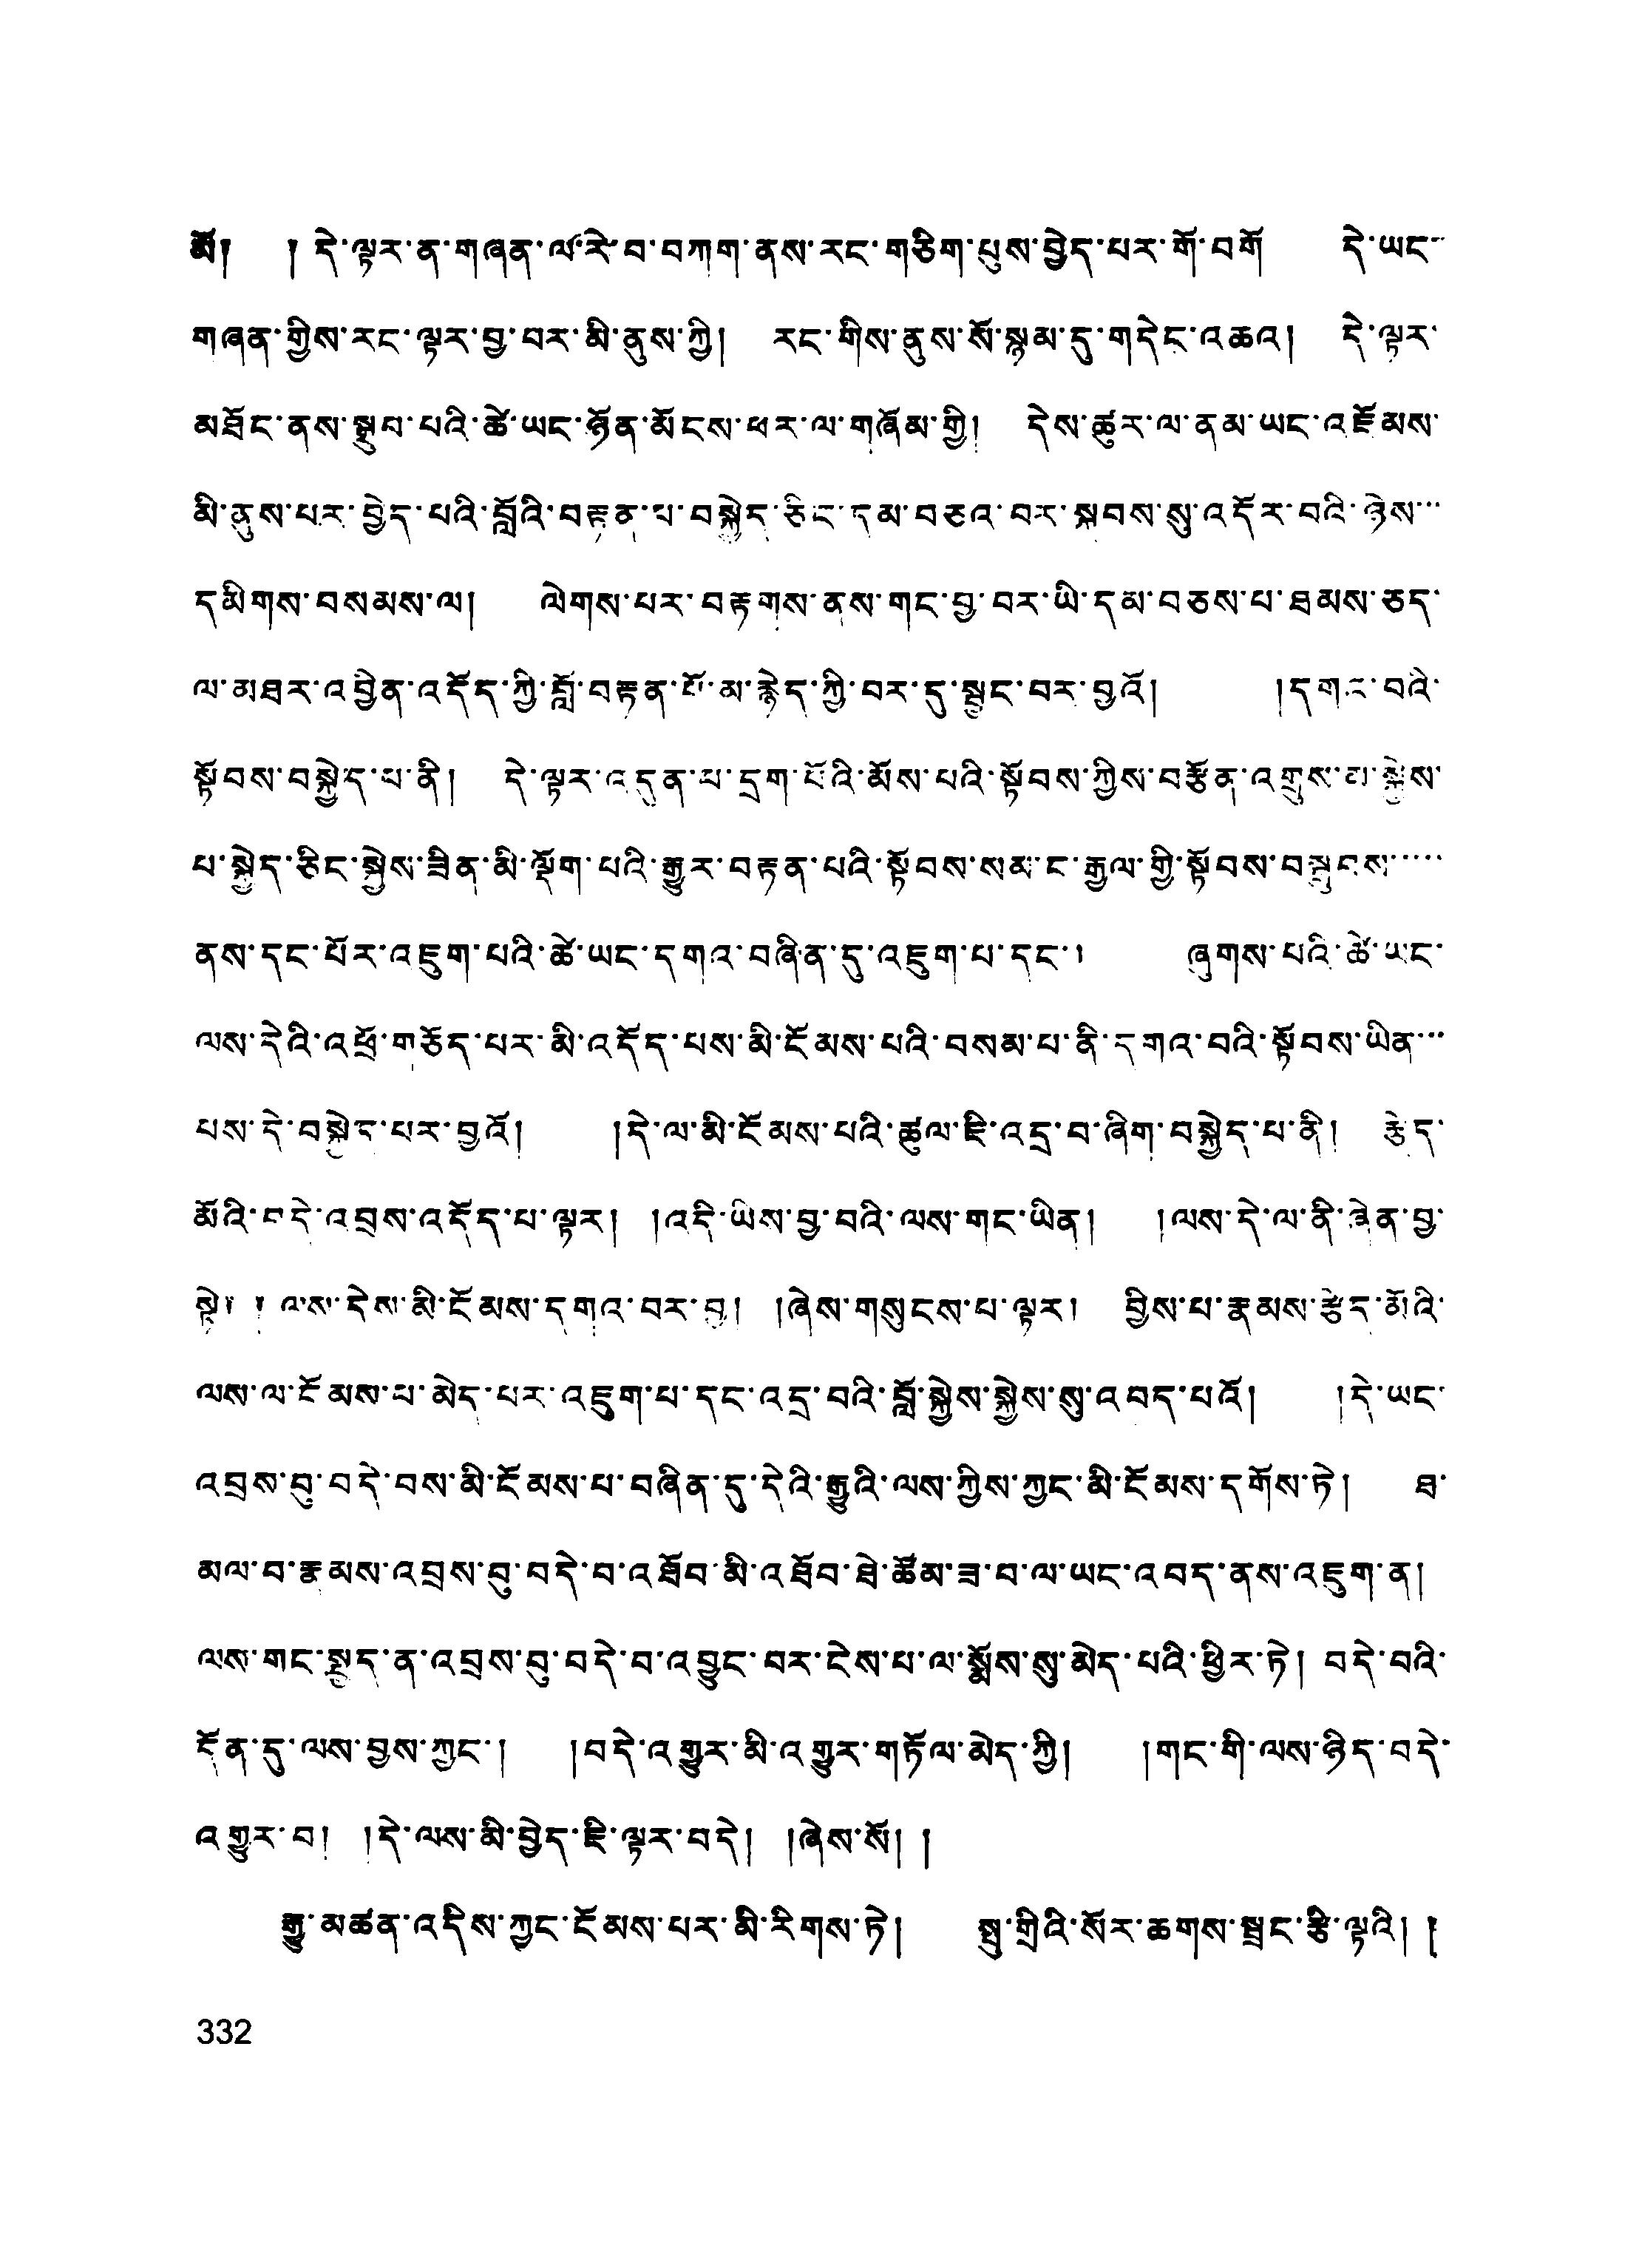 མོ། །དེ་ལྟར་ན་གཞན་ལ་རེ་བ་བཀག་ནས་རང་གཅིག་པུས་བྱེད་པར་གོ་བགོ དེ་ཡང་
གཞན་གྱིས་རང་ལྟར་བྱ་བར་མི་ནུས་ཀྱི། རང་གིས་ནུས་སོ་སྙམ་དུ་གདེང་འཆའ། དེ་ལྟར་
མཐོང་ནས་སྒྲུབ་པའི་ཚེ་ཡང་ཉོན་མོངས་ཕར་ལ་གཞོམ་གྱི། དེས་ཚུར་ལ་ནམ་ཡང་འཇོམས་
མི་ནུས་པར་བྱེད་པའི་བློའི་བརྟན་པ་བསྐྱེད་ཅིང་དམ་བཅའ་བར་སྐབས་སུ་འདོར་བའི་ཉེས་
དམིགས་བསམས་ལ། ལེགས་པར་བརྟགས་ནས་གང་བྱ་བར་ཡི་དམ་བཅས་པ་ཐམས་ཅད་
ལ་མཐར་འབྱིན་འདོད་ཀྱི་བློ་བརྟན་པོ་མ་རྙེད་ཀྱི་བར་དུ་སྦྱང་བར་བྱའོ། །དགར་བའི་
སྟོབས་བསྐྱེད་པ་ནི། དེ་ལྟར་འདུན་པ་དྲག་པོའི་མོས་པའི་སྟོབས་ཀྱིས་བརྩོན་འགྲུས་མ་སྐྱེས་
པ་སྐྱེད་ཅིང་སྐྱེས་ཟིན་མི་ལྡོག་པའི་རྒྱུར་བརྟན་པའི་སྟོབས་སམ་ང་རྒྱལ་གྱི་སྟོབས་བསྒྲུབས་
ནས་དང་པོར་འཇུག་པའི་ཚེ་ཡང་དགའ་བཞིན་དུ་འཇུག་པ་དང་། ཞུགས་པའི་ཚེ་ཡང་
ལས་དེའི་འཕྲོ་གཅོད་པར་མི་འདོད་པས་མི་ངོམས་པའི་བསམ་པ་ནི་དགའ་བའི་སྟོབས་ཡིན་
པས་དེ་བསྐྱེད་པར་བྱའོ། །དེ་ལ་མི་ངོམས་པའི་ཚུལ་ཇི་འདྲ་བ་ཞིག་བསྐྱེད་པ་ནི། རྩེད་
མོའི་བདེ་འབྲས་འདོད་པ་ལྟར། །འདི་ཡིས་བྱ་བའི་ལས་གང་ཡིན། །ལས་དེ་ལ་ནི་ཞེན་བྱ་
སྟེ། །ལས་དེས་མི་ངོམས་དགའ་བར་བྱ། །ཞེས་གསུངས་པ་ལྟར། བྱིས་པ་རྣམས་རྩེད་མོའི་
ལས་ལ་ངོམས་པ་མེད་པར་འཇུག་པ་དང་འདྲ་བའི་བློ་སྐྱེས་སྐྱེས་སུ་འབད་པའོ། །དེ་ཡང་
འབྲས་བུ་བདེ་བས་མི་ངོམས་པ་བཞིན་དུ་དེའི་རྒྱུའི་ལས་ཀྱིས་ཀྱང་མི་ངོམས་དགོས་ཏེ། ཐ་
མལ་བ་རྣམས་འབྲས་བུ་བདེ་བ་འཐོབ་མི་འཐོབ་ཐེ་ཚོམ་ཟ་བ་ལ་ཡང་འབད་ནས་འཇུག་ན།
ལས་གང་སྤྱད་ན་འབྲས་བུ་བདེ་བ་འབྱུང་བར་ངེས་པ་ལ་སྨོས་སུ་མེད་པའི་ཕྱིར་ཏེ། བདེ་བའི་
དོན་དུ་ལས་བྱས་ཀྱང་། །བདེ་འགྱུར་མི་འགྱུར་གཏོལ་མེད་ཀྱི། །གང་གི་ལས་ཉིད་བདེ་
འགྱུར་བ། །དེ་ལས་མི་བྱེད་ཇི་ལྟར་བདེ། །ཞེས་སོ། །
རྒྱུ་མཚན་འདིས་ཀྱང་ངོམས་པར་མི་རིགས་ཏེ། སྤུ་གྲིའི་སོར་ཆགས་སྦྲང་རྩི་ལྟའི། །
332